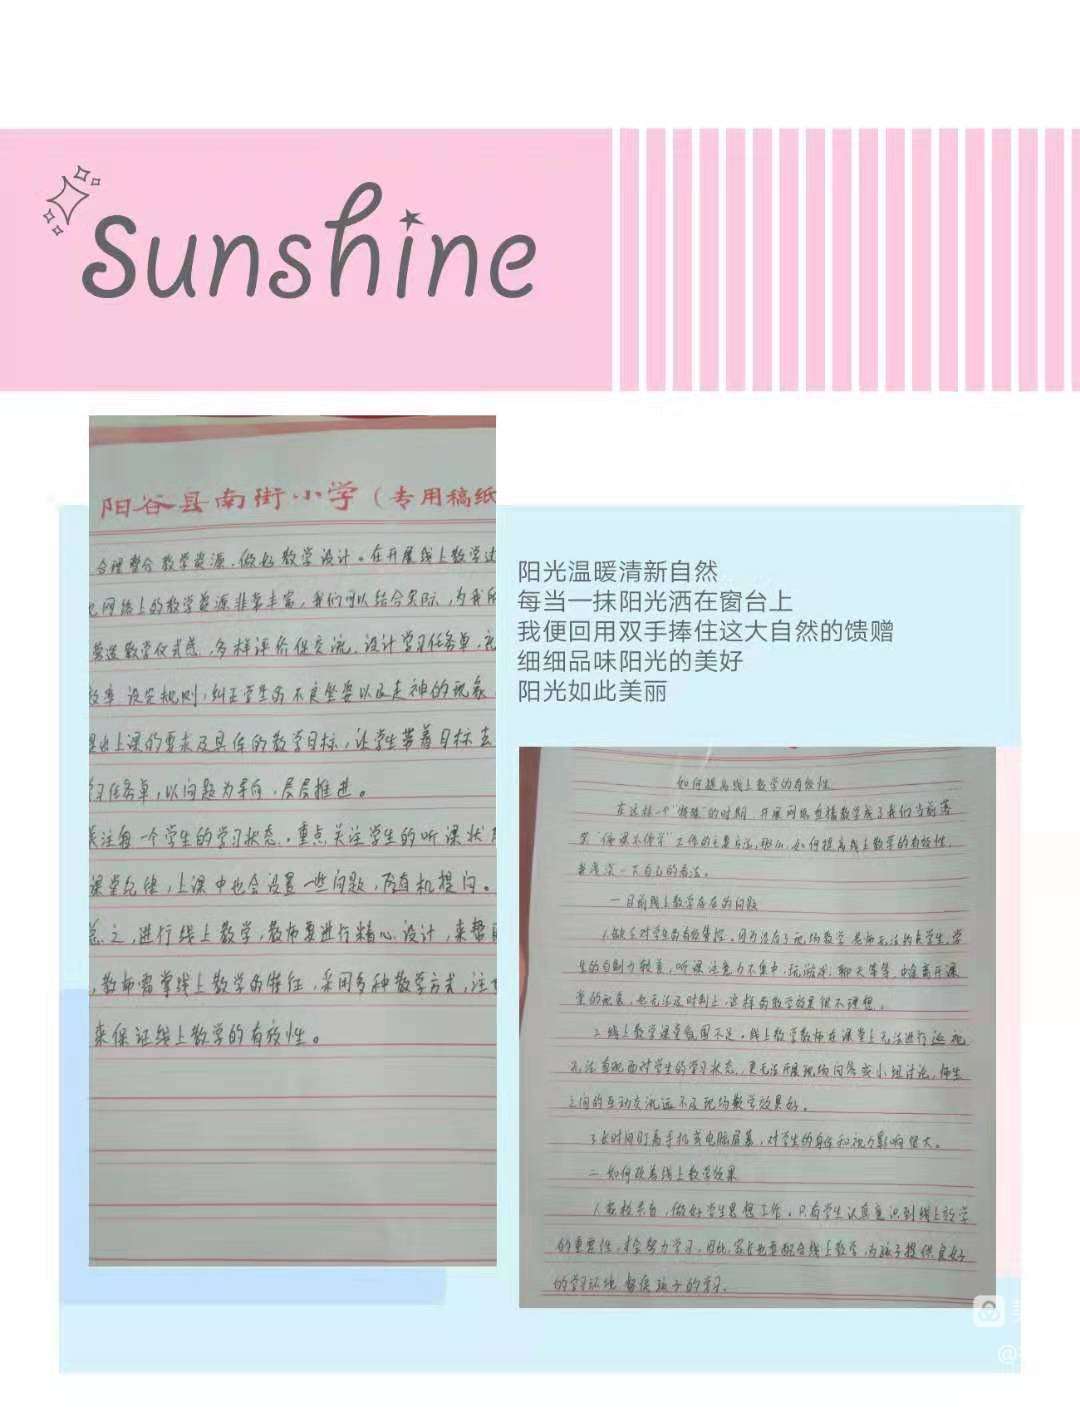 Sunshine
阳谷县南街小学（专用稿纸
合理整合教学资源，做好教学设计。在开展线上教学过
网络上的教学资源非常丰富，我们可以结合实际，为我所
营造教学仪式感，多样评价促交流，设计学习任务单，
效率，设定规则，纠正学生的不良坐姿以及走神的现象
提出上课的要求及具体的教学目标，让学生带着目标去
学习任务单，以问题为导向，层层推进。
关注每一个学生的学习状态，重点关注学生的听课状
课堂纪律，上课中也会设置一些问题，随机提问。
总之，进行线上教学，教师要进行精心设计，来帮
，教师需掌线上教学的特征，采用多种教学方式，注
来保证线上教学的有效性。
阳光温暖清新自然
每当一抹阳光洒在窗台上
我便回用双手捧住这大自然的馈赠
细细品味阳光的美好
阳光如此美丽
如何提高线上教学的有效性
在这样一个“特殊”的时期，开展网络直播教学成了我们当前落
实“停课不停学”工作的主要方法，那么，如何提高线上教学的有效性，
我浅谈一下自己的看法。
一 目前线上教学存在的问题
1.缺乏对学生的有效监控。因为没有了现场教学，老师无法约束学生，学
生的自制力较差，听课注意力不集中，玩游戏，聊天等等，中途离开课
堂的现象，也无法及时制止，这样的教学效果很不理想。
2.线上教学课堂氛围不足。线上教学教师在课堂上无法进行巡视
无法直观面对学生的学习状态，更无法开展现场问答或小组讨论，师生
之间的互动交流远不及现场教学效果好。
3.长时间盯着手机或电脑屏幕，对学生的身体和视力影响很大。
二 如何改善线上教学效果
1.家校共育，做好学生思想工作。只有学生认真意识到线上教学
的重要性，才会努力学习，因此，家长也要配合线上教学，为孩子提供良好
的学习环境，督促孩子的学习。